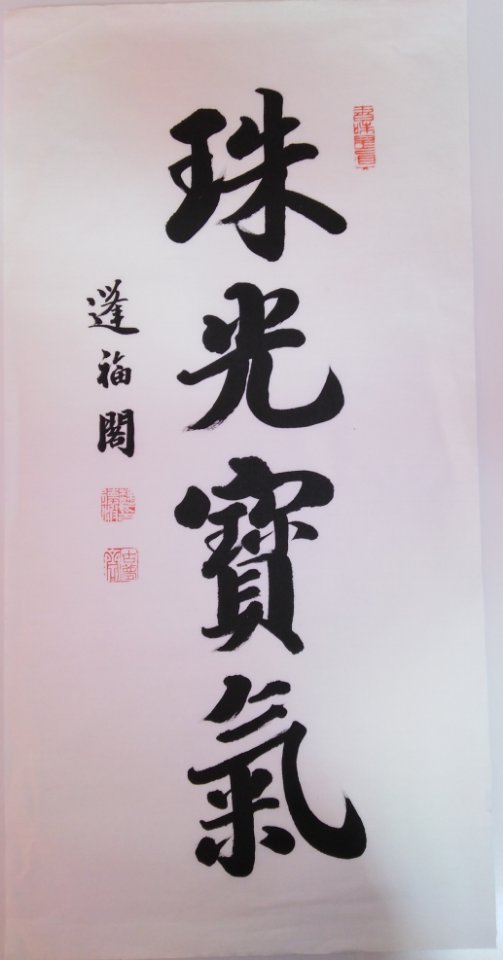 珠光寶氣
蓬福閣